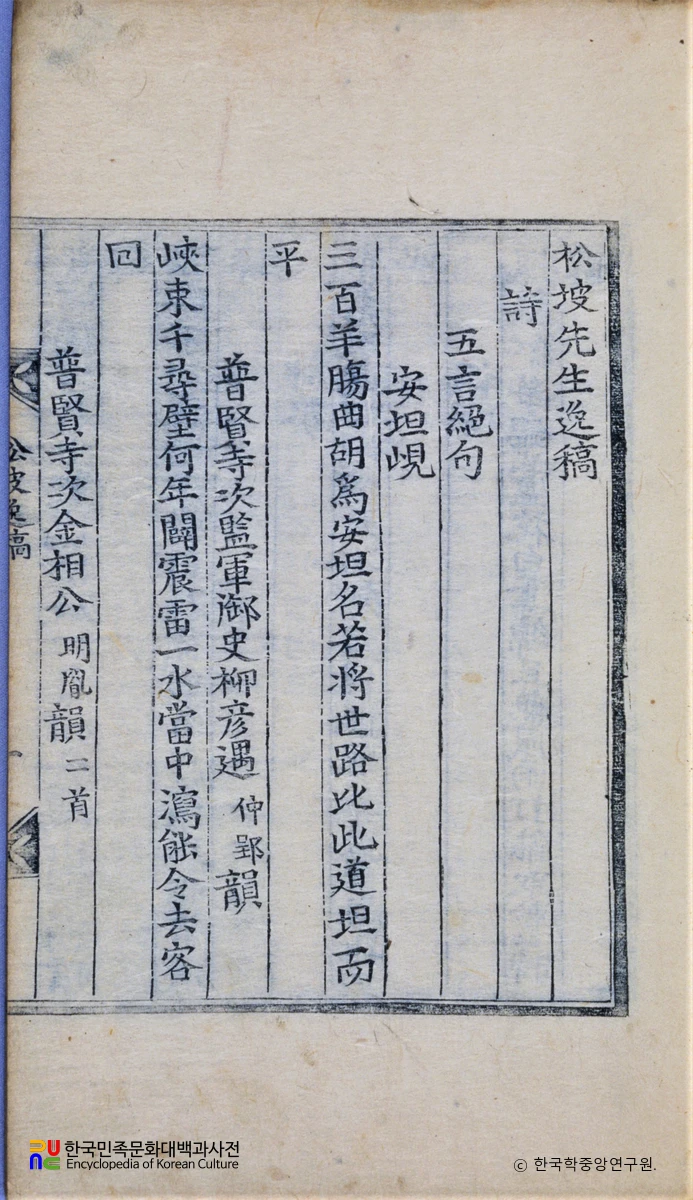 松坡先生逸稿
詩
五言絕句
安坦峴
三百羊膓曲胡爲安坦名若將世路比此道坦而
平
普賢寺次監軍御史柳彦遇仲郢韻
峽束千尋壁何年闢震雷一水當中瀉能令去客
回
普賢寺次金相公明胤韻二首
松坡逸稿
한국민족문화대백과사전
Encyclopedia of Korean Culture
ⓒ 한국학중앙연구원.